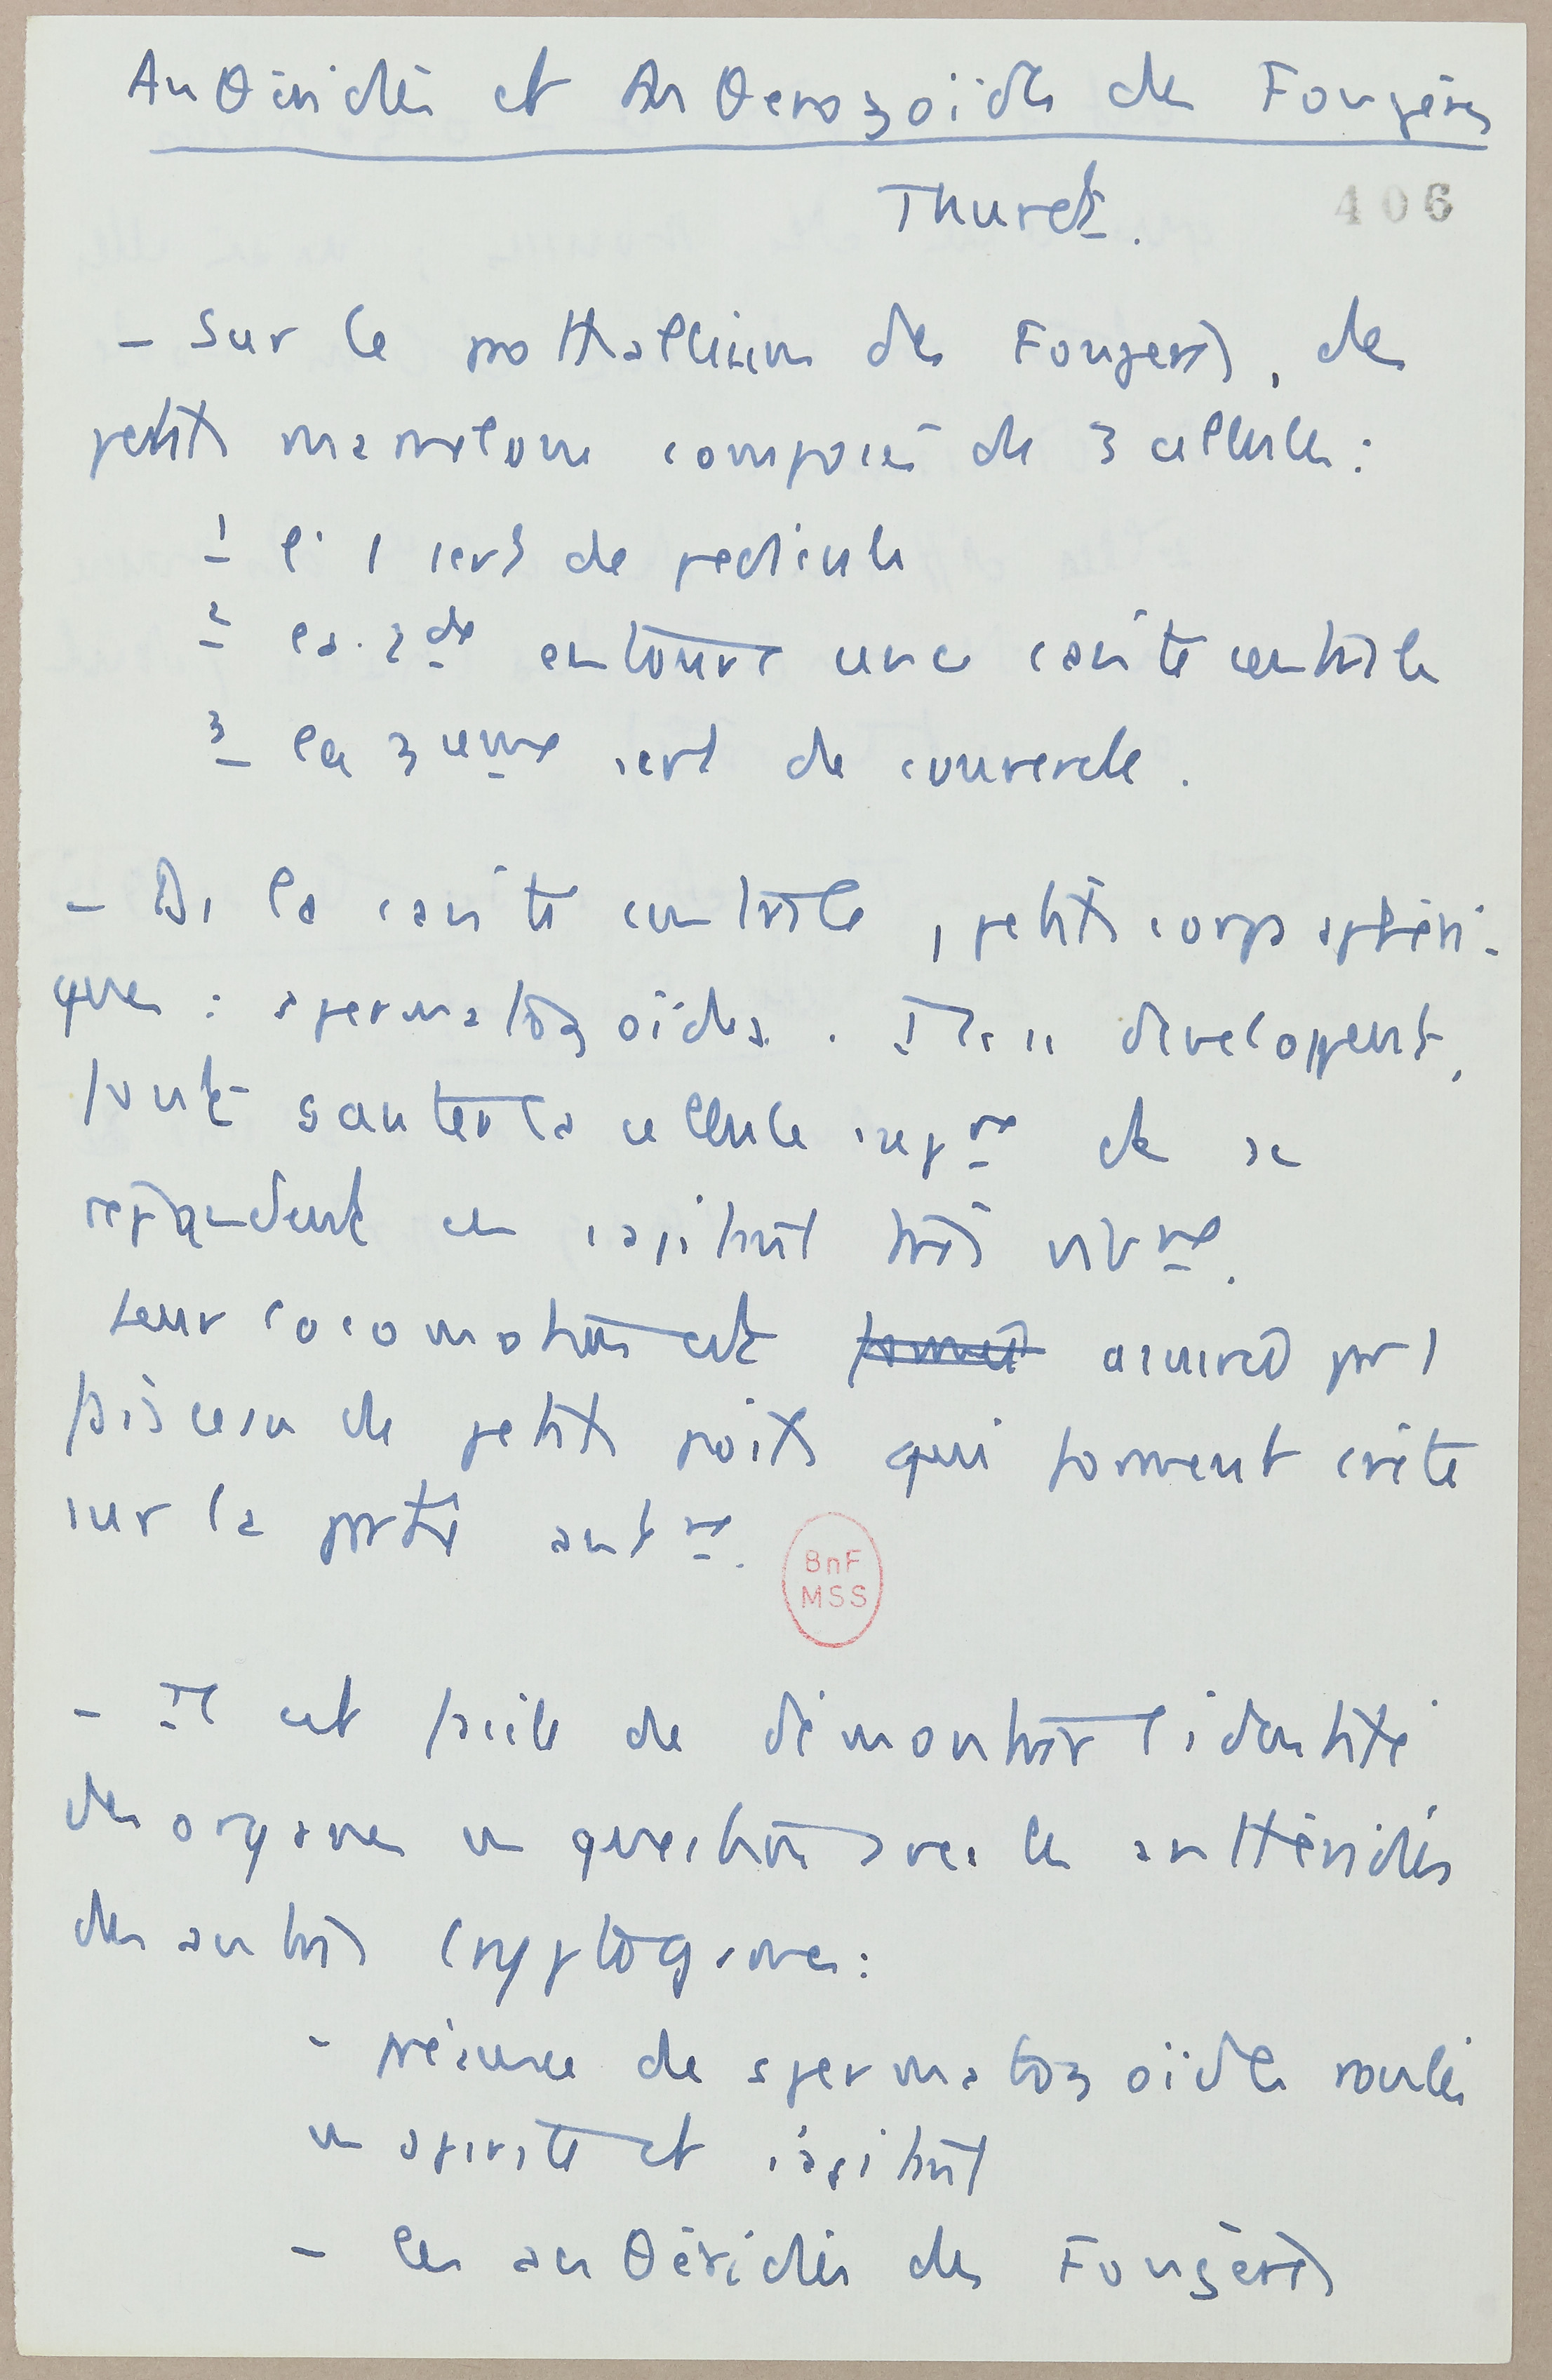 Anθéridies et Anθerozoïdes des Fougères
Thuret.
406
– Sur le prothallium des Fougeres, des
petits mamelons composés de 3 cellules :
1 l' 1 sert de pedicule
2 la 2de entoure une cavité centrale
3 la 3eme sert de couvercle.
– Ds la cavité centrale, petits corps sphéri-
ques : spermatozoïdes. Ils se développent,
font sauter la cellule supre et se
repandent en s'agitant très vivmt.
Leur locomotion est assurée par 1
faisceau de petits poils qui forment crête
sur la partie antre.
BnF
MSS
– Il est facile de démontrer l'identité
des organes en question avec les anthéridies
des autres cryptogames :
– présence de spermatozoïdes roulés
en spirale et s'agitant
– les anθéridies des Fougères